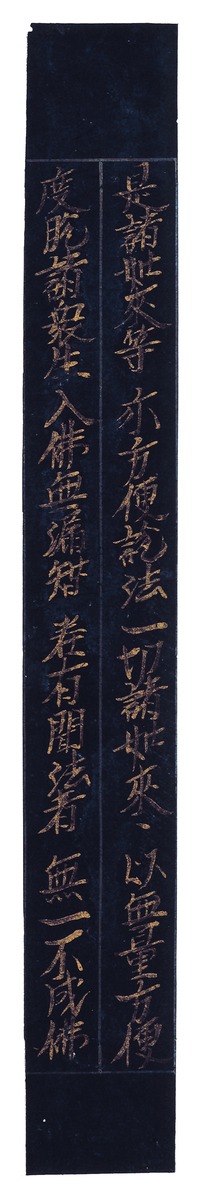 是諸如来等 亦方便説法 一切諸如来、 以無量方便
度脱諸衆生 入佛無漏智 若有聞法者 無一不成佛